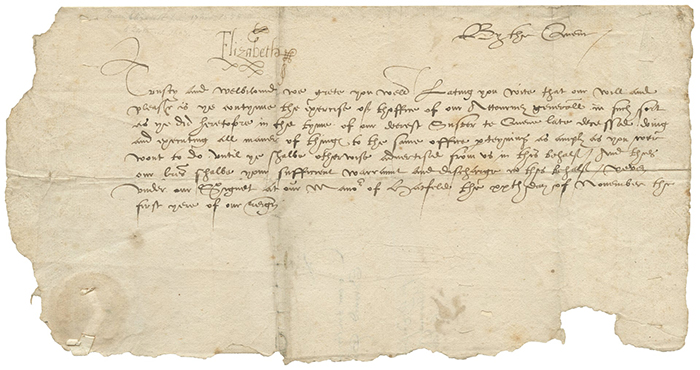 Elizabeth
By the Quene
Trusty and welbeloved we grete you well Lating you wite that our will and
pleasr is ye contynue the exercise of thoffice of our Attourney generall in such sort
as ye did heretofore in the tyme of our derest Suster the Quene late decessed doing
and executing all maner of things to the same office apteynyng as amply as you were
wont to do until ye shalbe otherwise advertised from us in this behalf And thies
our lres shalbe your sufficient warraunt and discharge in this behalf Yeven
under our Signet at our Manor of Hatfeld the xxth day of November the
first yere of our reign